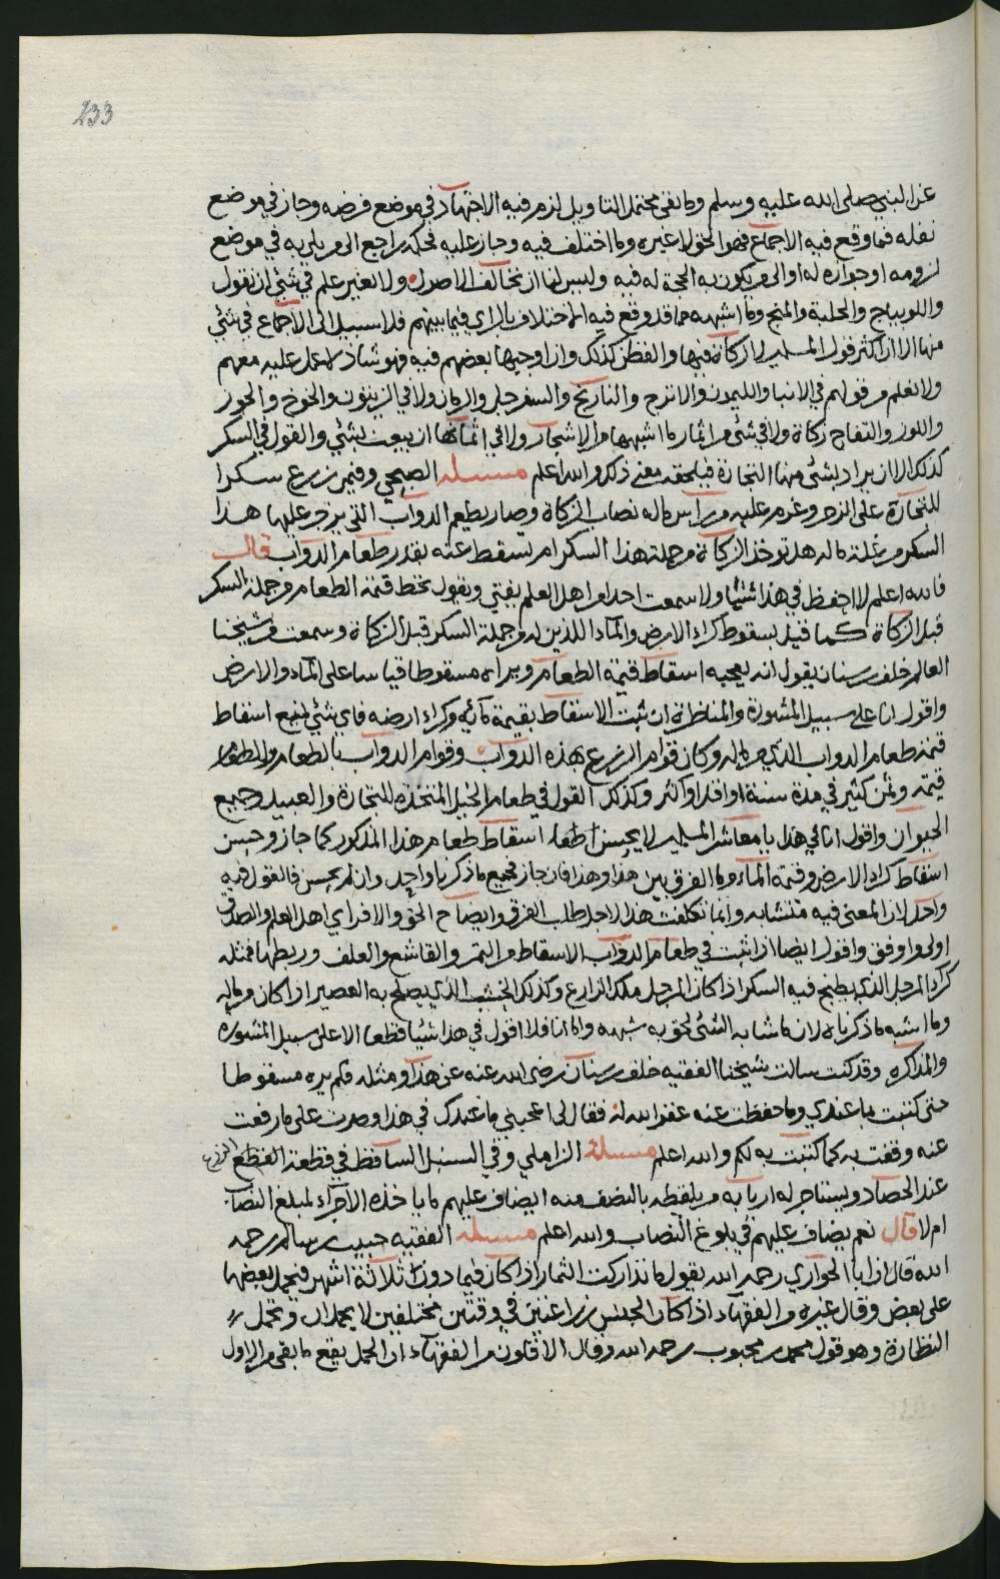 233
عن النبي صلى الله عليه وسلم وما بقي محتمل التاويل لزم فيه الاجتهاد في موضع فرضه وجاز في موضع
نفله فما وقع فيه الاجماع فهو الحق لا غيره وما اختلف فيه وجاز عليه فحكمه راجع الى من بلي به في موضع
لزومه او جوازه له او الى من يكون به الحجة له فيه وليس لنا ان نخالف الاصول ولا بغير علم في شئ ان نقول
واللوبياج والحلبة والمنج وما اشبهه مما قد وقع فيه الاختلاف بالراي فيما بينهم فلا سبيل الى الاجماع في شئي
منها الا ان اكثر قول المسلمين لا زكاة فيها والقطن كذلك وان اوجبها بعضهم فيه فهو شاذ لا عمل عليه معهم
ولا نعلم من قولهم في الانبا والليمون والاترج والنارنج والسفرجل والرمان ولا في الزيتون والخوخ والجوز
واللوز والتفاح زكاة ولا في شئ من اثمار ما اشبهها من الاشجار ولا في اثمانها ان بيعت بشئي والقول في السكر
كذلك الا ان يراد بشئ منها التجارة فيلحقه معنى ذلك والله اعلم مسئله الصبحي وفيمن زرع سكرا
للتجارة على الزجر وغرم عليه من راس ماله نصاب الزكاة وصار يطعم الدواب التي يزجر عليها هذا
السكر من غلة ماله هل توخذ الزكاة من جملة هذا السكر ام تسقط عنه بقدر طعام الدواب قال
فالله اعلم لا احفظ في هذا شئيا ولا سمعت احدا من اهل العلم يفتي ويقول بحط قيمة الطعام من جملة السكر
قبل الزكاة كما قيل بسقوط كراء الارض والماء اللذين له من جملة السكر قبل الزكاة وسمعت من شيخنا
العالم خلف بن سنان يقول انه يعجبه اسقاط قيمة الطعام ويراه مسقوطا قياسا على الماء والارض
واقول انا على سبيل المشورة والمناظرة ان ثبت الاسقاط بقيمة مائه وكراء ارضه فاي شئي يمنع اسقاط
قيمة طعام الدواب الذي من ماله وكان قوام الزرع بهذه الدواب وقوام الدواب بالطعام وللطعام
قيمة وثمن كثير في مدة سنة او اقل او اكثر وكذلك القول في طعام الخيل المتخذه للتجارة والعبيد وجميع
الحيوان واقول انا في هذا يا معاشر المسلمين لا يحسن اسقاط طعام هذا المذكور كما جاز وحسن
اسقاط كراء الارض وقيمة الماء وما الفرق بين هذا وهذا فان جاز فجميع ما ذكرنا واحد وان لم يحسن فالقول فيه
واحد لان المعنى فيه متشابه وانما تكلفت هذا لاجل طلب الفرق وايضاح الحق والا فراي اهل العلم والصدق
اولى واوفق واقول ايضا اذا ثبت في طعام الدواب الاسقاط من التمر والقاشع والعلف وربطها فمثله
كراء المرجل الذي يطبخ فيه السكر اذا كان المرجل ملك الزارع وكذلك الخشب الذي يصلح به العصير اذا كان من ماله
وما اشبه ما ذكرناه لان ما شابه الشئ لحق به شبهه واما انا فلا اقول في هذا شيا قطعا الا على سبيل المشوره
والمذاكره وقد كنت سالت شيخنا الفقيه خلف بن سنان رضي الله عنه عن هذا ومثله فلم يره مسقوطا
حتى كتبت ما عندي وما حفظت عنه غفر الله له فقال لي اعجبني ما عندك في هذا وصرت على ما رفعت
عنه وقفت به كما كتبت به لكم والله اعلم مسئلة الزاملي وفي السنبل الساقط في قطعة القطع
عند الحصاد ويستاجر له اربابه من يلقطه بالنصف منه ايضاف عليهم ما ياخذه الاجراء لمبلغ النصاب
ام لا قال نعم يضاف عليهم في بلوغ النصاب والله اعلم مسئله الفقيه حبيب بن سالم رحمه
الله قال ان ابا الحواري رحمه الله يقول ما تداركت الثمار اذا كان فيما دون ثلاثة اشهر فيحمل بعضها
على بعض وقال غيره من الفقهاء اذا كان الجنس زراعتين في وقتين مختلفين لا يحملان وتحمل
النظارة وهو قول محمد بن محبوب رحمه الله وقال الاقلون من الفقهاء ان الحمل يقع ما بقي من الاول